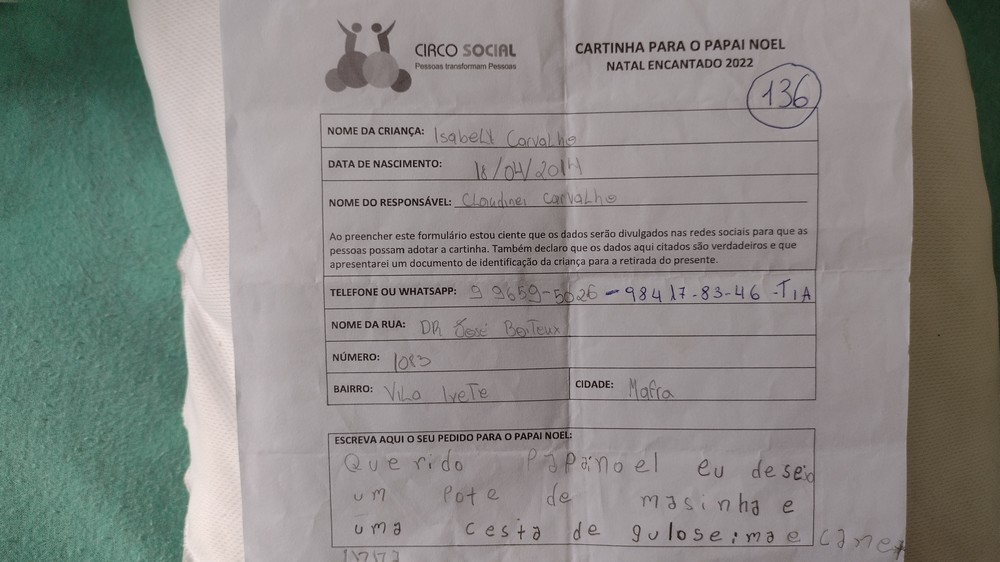 CIRCO SOCIAL
Pessoas transformam Pessoas
CARTINHA PARA O PAPAI NOEL
NATAL ENCANTADO 2022
136
NOME DA CRIANÇA: Isabely Carvalho
DATA DE NASCIMENTO: 18/04/2014
NOME DO RESPONSÁVEL: Claudinei Carvalho
Ao preencher este formulário estou ciente que os dados serão divulgados nas redes sociais para que as
pessoas possam adotar a cartinha. Também declaro que os dados aqui citados são verdadeiros e que
apresentarei um documento de identificação da criança para a retirada do presente.
TELEFONE OU WHATSAPP: 9 9659-5026 - 984 17-83-46 - TIA
NOME DA RUA: DR José Boiteux
NÚMERO: 1083
BAIRRO: Vila Ivete CIDADE: Mafra
ESCREVA AQUI O SEU PEDIDO PARA O PAPAI NOEL:
Querido Papainoel eu desejo
um Pote de masinha e
uma cesta de guloseima e canet